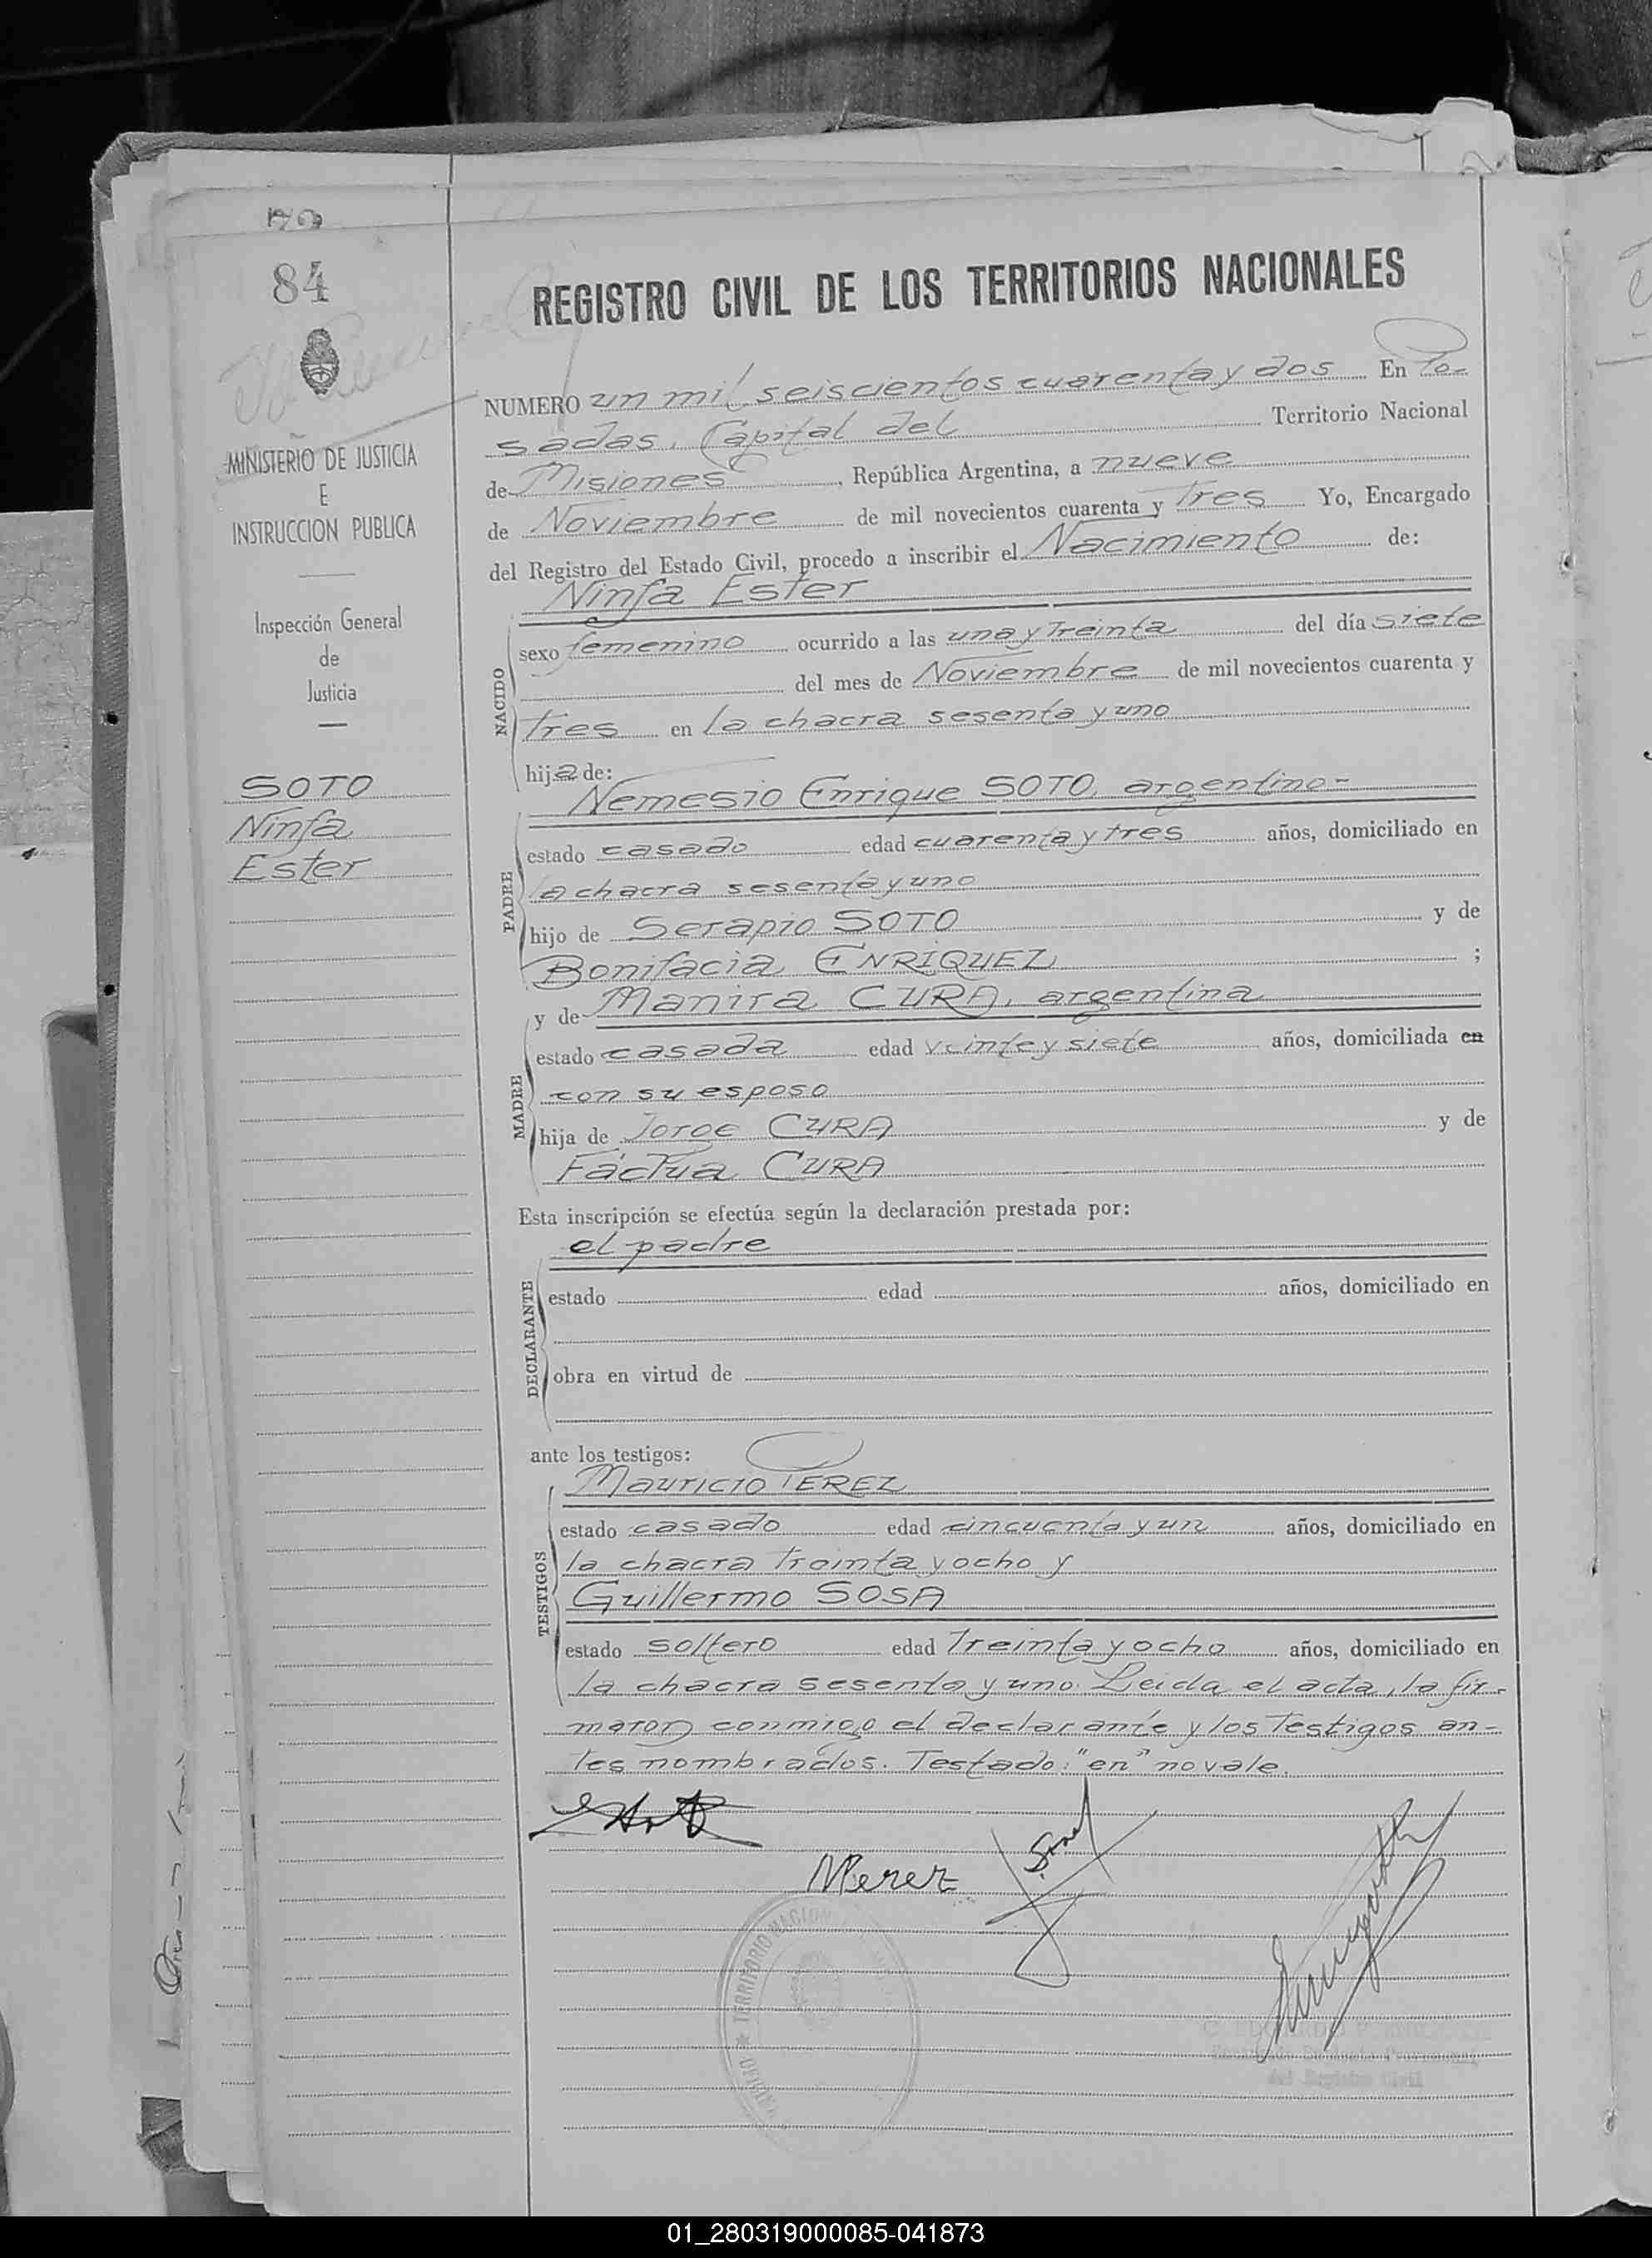 84
MINISTERIO DE JUSTICIA
E
INSTRUCCION PUBLICA
Inspección General
de
Justicia
SOTO
Ninfa
Ester
REGISTRO CIVIL DE LOS TERRITORIOS NACIONALES
NUMERO un mil seiscientos cuarenta y dos En Po-
sadas, Capital del Territorio Nacional
de Misiones, República Argentina, a nueve
de Noviembre de mil novecientos cuarenta y Tres Yo, Encargado
del Registro del Estado Civil, procedo a inscribir el Nacimiento de:
NACIDO
Ninfa Ester
sexo femenino ocurrido a las una y Treinta del día siete
del mes de Noviembre de mil novecientos cuarenta y
Tres en la chacra sesenta y uno
hija de:
PADRE
Nemesio Enrique SOTO, argentino-
estado casado edad cuarenta y tres años, domiciliado en
la chacra sesenta y uno
hijo de Serapio SOTO y de
Bonifacia ENRIQUEZ ;
MADRE
y de Manira CURA, argentina
estado casada edad veinte y siete años, domiciliada en
con su esposo
hija de Jorge CURA y de
Fáctua CURA
Esta inscripción se efectúa según la declaración prestada por:
DECLARANTE
el padre
estado edad años, domiciliado en
obra en virtud de
ante los testigos:
TESTIGOS
Mauricio PEREZ
estado casado edad cincuenta y un años, domiciliado en
la chacra Treinta y ocho y
Guillermo SOSA
estado soltero edad Treinta y ocho años, domiciliado en
la chacra sesenta y uno. Leida el acta, la fir-
maron conmigo el declarante y los Testigos an-
tes nombrados. Testado: "en" no vale.
MPerez
TERRITORIO NACION
del Registro Civil
01_280319000085-041873